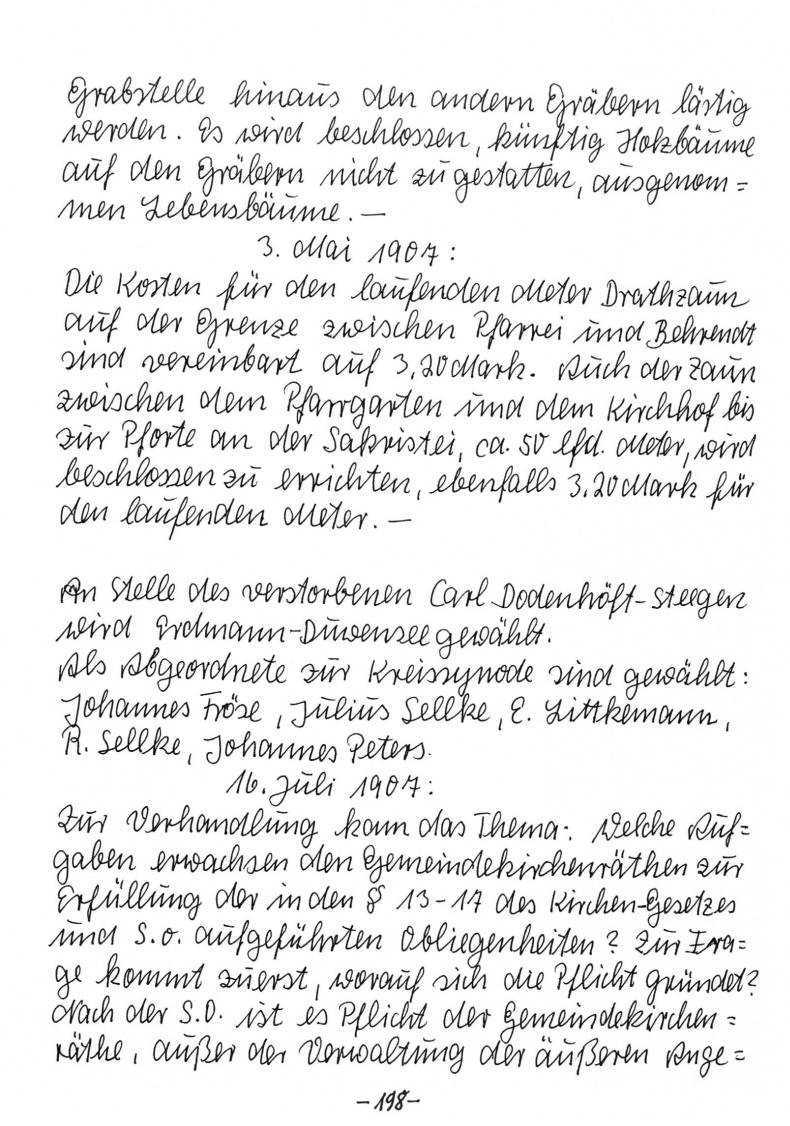 Grabstelle hinaus den andern Gräbern lästig
werden. Es wird beschlossen, künftig Holzbäume
auf den Gräbern nicht zu gestatten, ausgenom=
men Lebensbäume. —
3. Mai 1907:
Die Kosten für den laufenden Meter Drathzaun
auf der Grenze zwischen Pfarrei und Behrendt
sind vereinbart auf 3,20 Mark. Auch der Zaun
zwischen dem Pfarrgarten und dem Kirchhof bis
zur Pforte an der Sakristei, ca. 50 lfd. Meter, wird
beschlossen zu errichten, ebenfalls 3,20 Mark für
den laufenden Meter. —
An Stelle des verstorbenen Carl Dodenhöft-Steegen
wird Erdmann-Duwensee gewählt.
Als Abgeordnete zur Kreissynode sind gewählt:
Johannes Fröse, Julius Sellke, E. Littkemann,
R. Sellke, Johannes Peters.
16. Juli 1907:
Zur Verhandlung kam das Thema: Welche Auf=
gaben erwachsen den Gemeindekirchenräthen zur
Erfüllung der in den § 13-17 des Kirchen-Gesetzes
und S. O. aufgeführten Obliegenheiten? Zur Fra=
ge kommt zuerst, worauf sich die Pflicht gründet?
Nach der S.O. ist es Pflicht der Gemeindekirchen=
räthe, außer der Verwaltung der äußeren Ange=
-198-